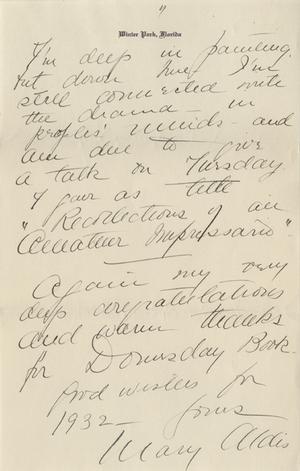 "
Winter Park, Florida
I'm deep in painting
but down here I'm
still connected with
the drama - in
peoples' minds - and
am due to give
a talk on Tuesday
I gave as title
"Recollections of an
Amateur Impressario".
Again my very
deep congratulations
and warm thanks
for Domesday Book.
Good wishes for
1932 - Yours
Mary Aldis